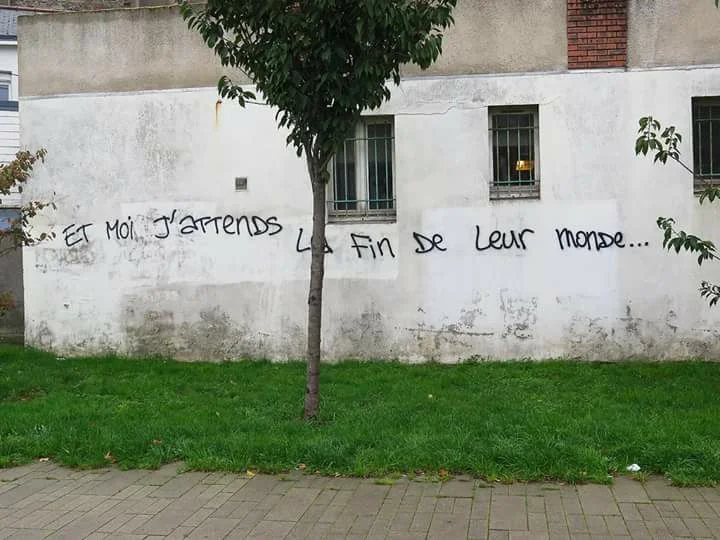 ET Moi J'ATTENDS LA Fin DE Leur monde...